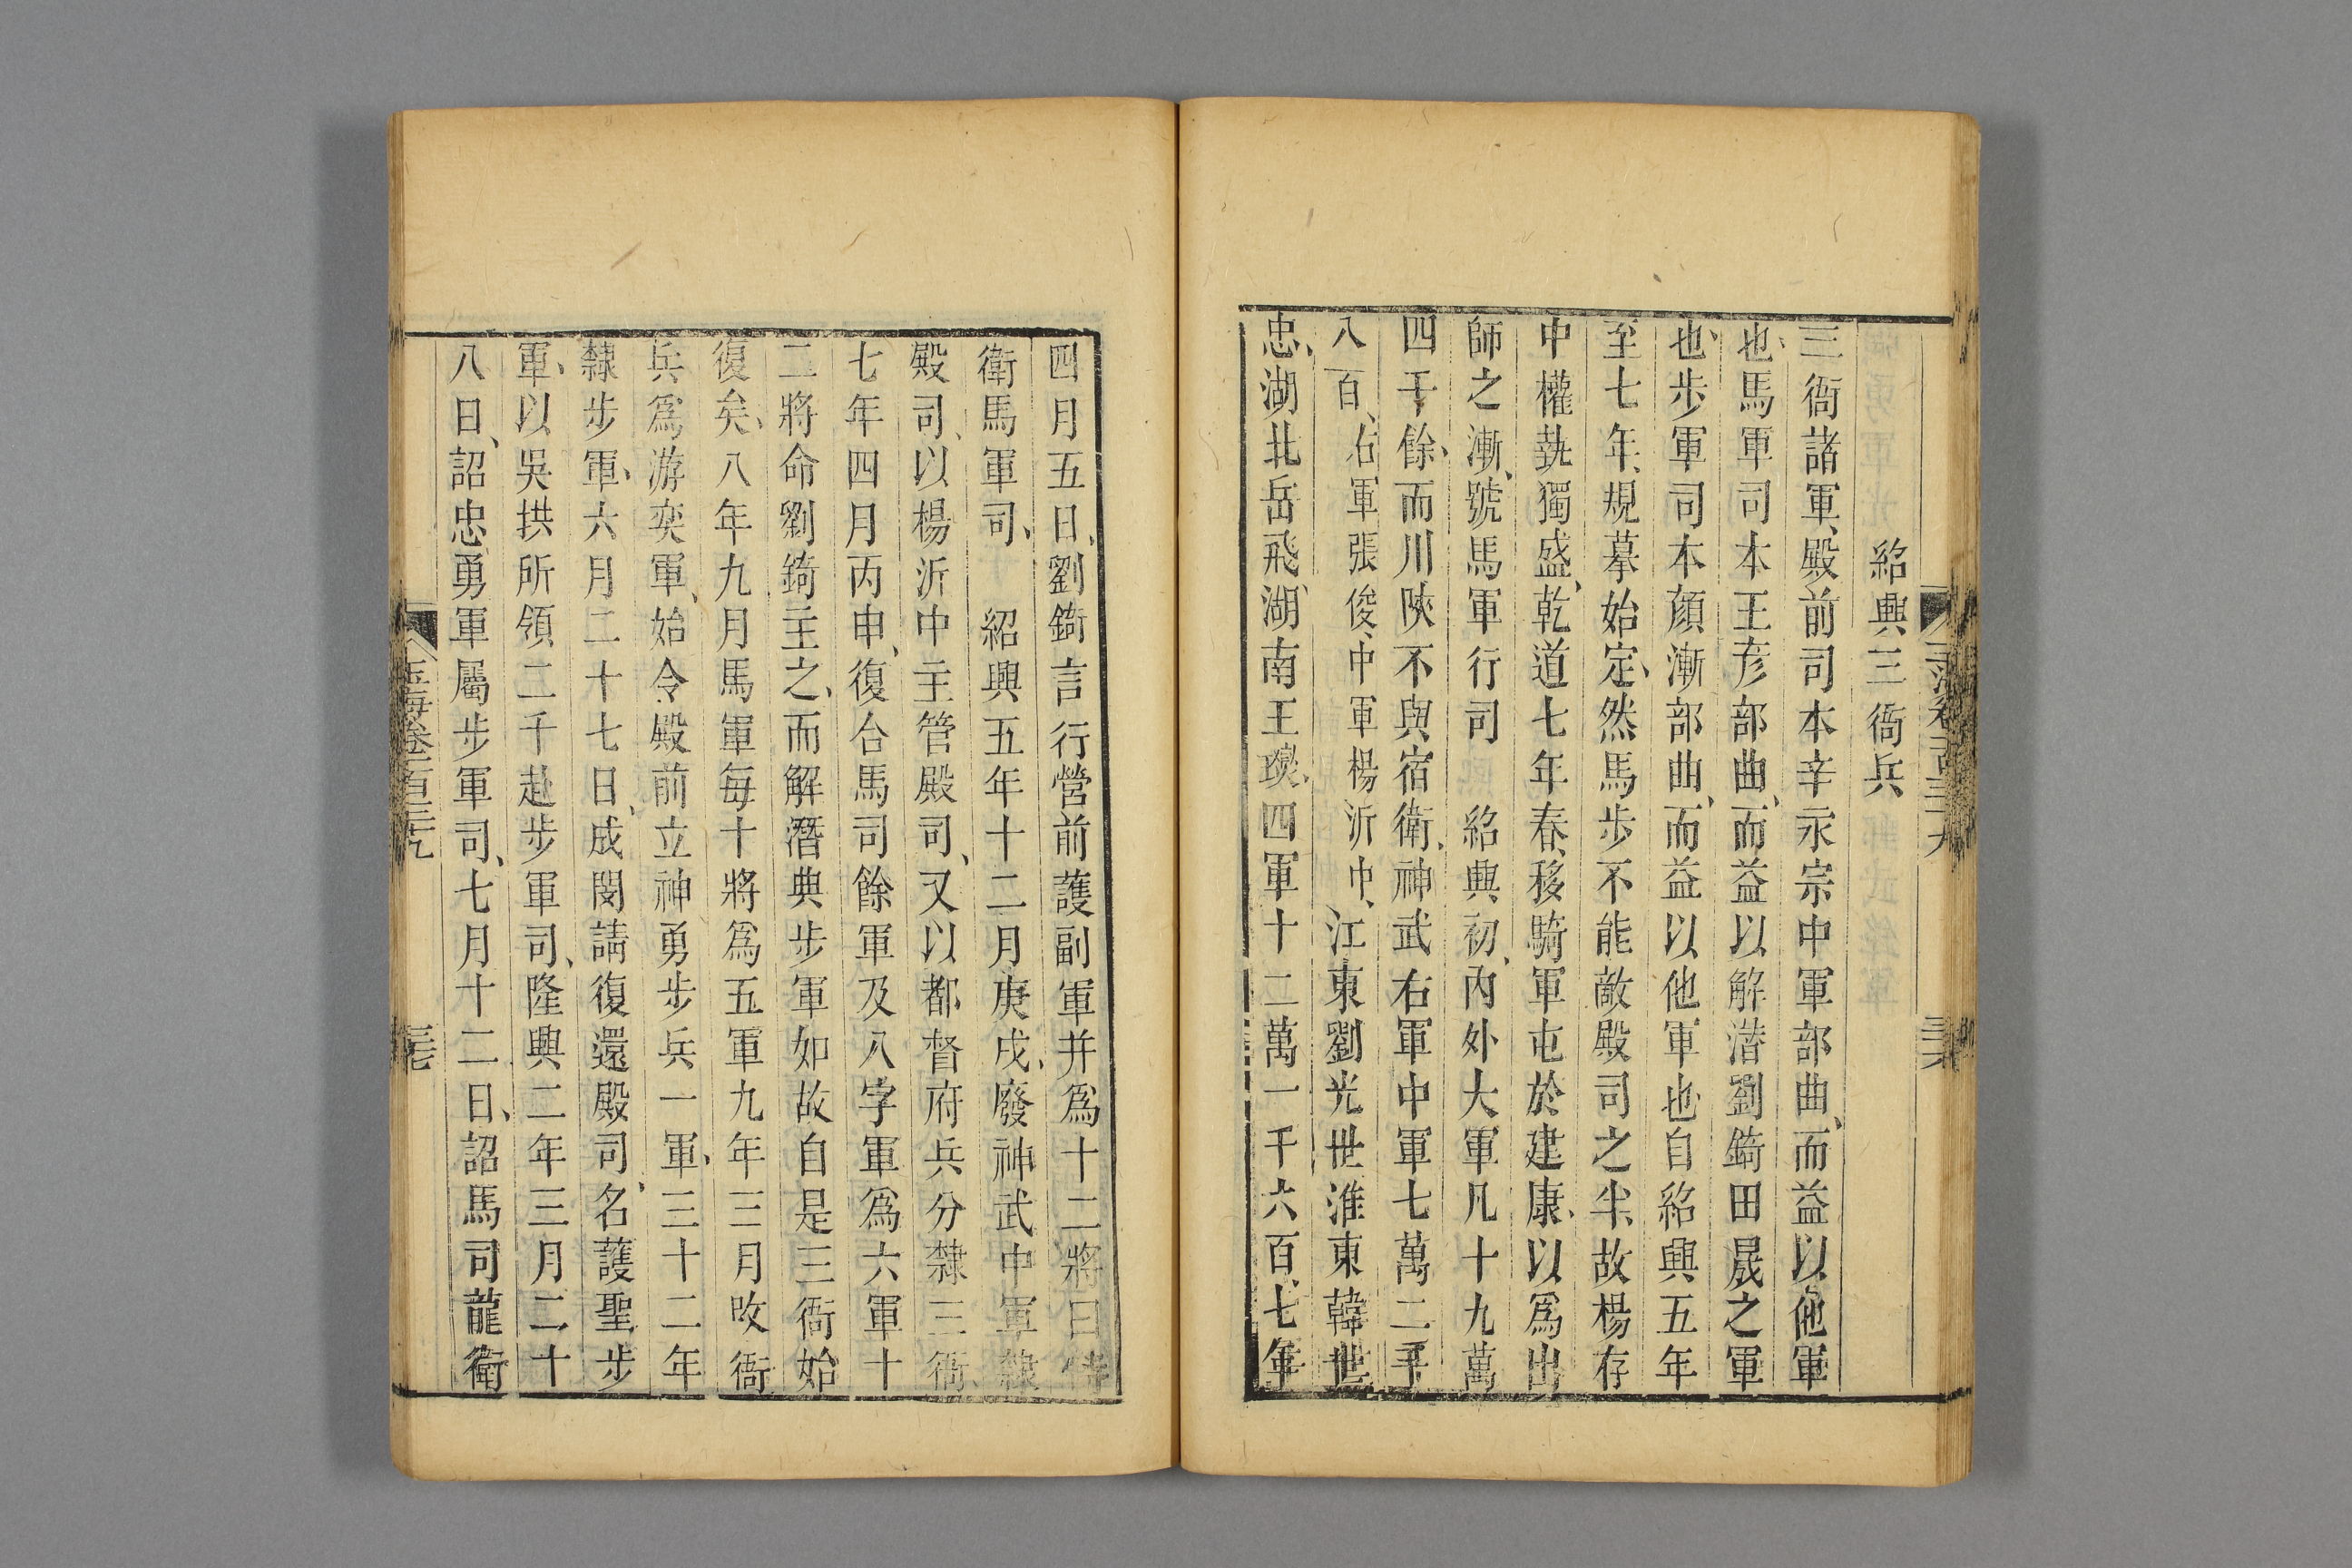 紹興三衙兵
三衙諸軍、殿前司本辛永宗中軍部曲、而益以他軍
也、馬軍司本王彦部曲、而益以解潜劉錡田晟之軍
也、步軍司本顔漸部曲、而益以他軍也自紹興五年
至七年、規摹始定、然馬步不能敵殿司之半、故楊存
中權埶獨盛、乾道七年春、移騎軍屯於建康、以爲出
師之漸、號馬軍行司 紹興初、內外大軍凡十九萬
四千餘、而川陝不與、宿衛、神武右軍中軍七萬二千
八百、右軍張俊、中軍楊沂中、江東劉光世淮東韓世
忠、湖北岳飛、湖南王𤫉、四軍十二萬一千六百、七年
四月五日、劉錡言行營前護副軍并爲十二將曰侍
衛馬軍司、 紹興五年十二月庚戌、廢神武中軍隸
殿司、以楊沂中主管殿司、又以都督府兵分隸三衙、
七年四月丙申、復合馬司餘軍及八字軍爲六軍十
二將命劉錡主之、而解潛典步軍如故自是三衙始
復矣、八年九月馬軍每十將爲五軍九年三月改衙
兵爲游奕軍、始令殿前立神勇步兵一軍、三十二年
隸步軍、六月二十七日、成閔請復還殿司、名護聖步
軍、以吳拱所領二千赴步軍司、隆興二年三月二十
八日、詔忠勇軍屬步軍司、七月十二日、詔馬司龍衛
玉海卷一百三十九
三七